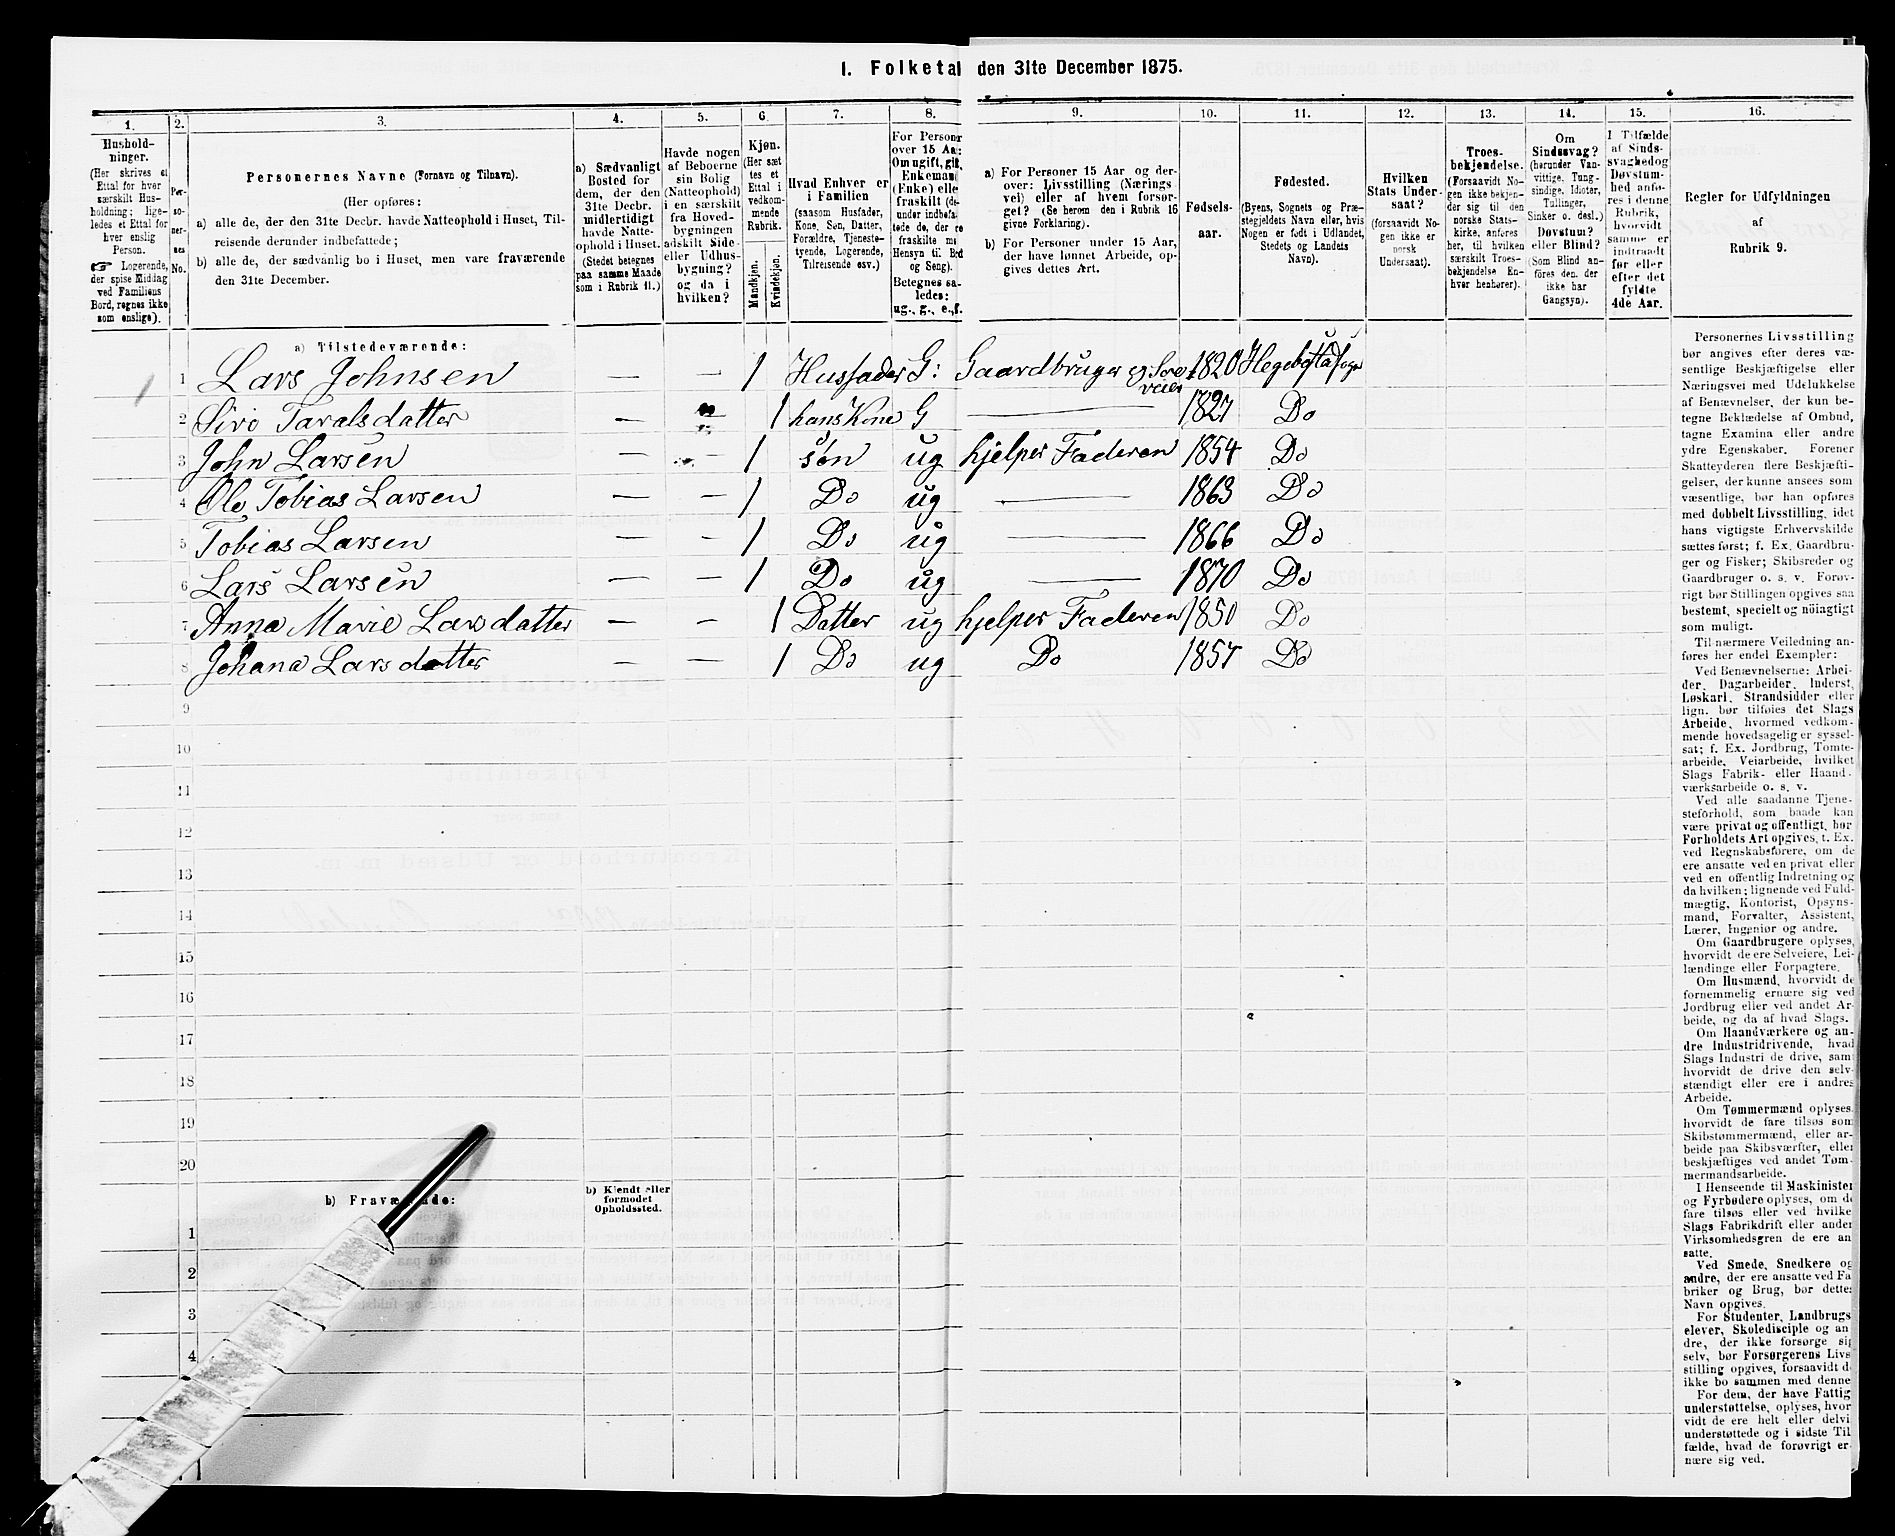 1. Folketal den 31te December 1875.
1. 2. 3. 4. 5. 6. 7. 8. 9. 10. 11. 12. 13. 14. 15. 16.
Hushold-
ninger.
(Her skrives et
Ettal for hver
særskilt Hus-
holdning; lige-
ledes et Ettal for
hver enslig
Person.
☞ Logerende,
der spise Middag
ved Familiens
Bord, regnes ikke
som enslige).
Per-
so-
ner-
nes
No.
Personernes Navne (Fornavn og Tilnavn).
(Her opføres:
a) alle de, der den 31te Decbr. havde Natteophold i Huset, Til-
reisende derunder indbefattede;
b) alle de, der sædvanlig bo i Huset, men vare fraværende
den 31te December.
a) Sædvanligt
Bosted for
dem, der den
31te Decbr.
midlertidigt
havde Natte-
ophold i Huset.
(Stedet betegnes
paa samme Maade
som i Rubrik 11.)
Havde nogen
af Beboerne
sin Bolig
(Natteophold)
i en særskilt
fra Hoved-
bygningen
adskilt Side-
eller Udhus-
bygning?
og da i
hvilken?
Kjøn.
(Her sæt
tes et
Ettal i
vedkom-
mende
Rubrik.
Mandkjøn.
Kvindekjøn.
Hvad Enhver er
i Familien
(saasom Husfader,
Kone, Søn, Datter,
Forældre, Tjeneste-
tyende, Logerende,
Tilreisende osv.)
For Person
over 15 Aa:
Om ugift, gift,
Enkeman
(Enke) elle
fraskilt (d
under indbefa
tede de, der e
fraskilte m
Hensyn til Bord
og Seng).
Betegnes sa-
ledes:
ug., g., e., f.
a) For Personer 15 Aar og der-
over: Livsstilling (Nærings
vei) eller af hvem forsør-
get? (Se herom den i Rubrik 16
givne Forklaring).
b) For Personer under 15 Aar,
der have lønnet Arbeide, op-
gives dettes Art.
Fødsels-
aar.
Fødested.
(Byens, Sognets og Præ-
stegjeldets Navn eller, hvis
Nogen er født i Udlandet,
Stedets og Landets
Navn).
Hvilken
Stats Under-
saat?
(forsaavidt No-
gen ikke er
norsk
Undersaat).
Troes-
bekjendelse.
(Forsaavidt No-
gen ikke bekjen-
der sig til den
norske Stats-
kirke, anføres
her, til hvilken
særskilt Troes-
bekjendelse En-
hver henhører).
Om
Sindssvag?
(herunder Van-
vittige, Tung-
sindige, Idioter,
Tullinger,
Sinker o. desl.)
Døvstum?
eller Blind?
(Som Blind an-
føres den, der
ikke har
Gangsyn).
I Tilfælde
af Sinds-
svaghed og
Døvstum-
hed anfø-
res i denne
Rubrik,
hvorvidt
samme er
indtraadt
før eller
efter det
fyldte
4de Aar.
Regler for Udfyldningen
af
Rubrik 9.
a) Tilstedeværende:
1 1 Lars Johnsen — — 1 Husfader G: Gaardbruger og 1820
2 Siro Taralsdatter — 1 hans Kone G — 1827 Do
3 John Larsen — 1 søn ug hjelper Faderen 1854 Do
4 Ole Tobias Larsen — — 1 Do ug — 1863 Do
5 Tobias Larsen — — 1 Do ug — 1866 Do
6 Lars Larsen — — 1 Do ug — 1870 Do
7 Anna Marie Larsdatter — — 1 Datter ug hjelper Faderen 1850 Do
8 Johana Larsdatter — — 1 Do ug Do 1857 Do
9
10
11
12
13
14
15
16
17
18
19
20
b) Fraværende:
b) Kjendt eller
formodet
Opholdssted.
1
2
3
4
Personernes Livsstilling
bør angives efter deres væ-
sentlige Beskjæftigelse eller
Næringsvei med Udelukkelse
af Benævnelser, der kun be-
tegne Beklædelse af Ombud,
tagne Examina eller andre
ydre Egenskaber. Forener
Skatteyderen flere Beskjæfti-
gelser, der kunne ansees som
væsentlige, bør han opføres
med dobbelt Livsstilling, idet
hans vigtigste Erhvervskilde
sættes først; f. Ex. Gaardbru-
ger og Fisker; Skibsreder og
Gaardbruger o. s. v. Forøv-
rigt bør Stillingen opgives saa
bestemt, specielt og nöiagtigt
som muligt.
Til nærmere Veiledning an-
føres her endel Exempler:
Ved Benævnelserne: Arbei-
der, Dagarbeider, Inderst,
Løskarl, Strandsidder eller
lign. bør tilføies det Slags
Arbeide, hvormed vedkom-
mende hovedsagelig er syssel-
sat; f. Ex. Jordbrug, Tomte-
arbeide, Veiarbeide, hvilket
Slags Fabrik- eller Haand-
værksarbeide o. s. v.
Ved alle saadanne Tjene-
steforhold, som baade kan
være privat og offentligt, bør
Forholdets Art opgives, t. Ex.
ved Regnskabsførere, om de
ere ansatte ved en privat eller
ved en offentlig Indretning og
da hvilken; lignende ved Fuld-
mægtig, Kontorist, Opsyns-
mand, Forvalter, Assistent,
Lærer, Ingeniør og andre.
Om Gaardbrugere oplyses,
hvorvidt de ere Selveiere, Lei-
lændinge eller Forpagtere.
Om Husmænd, hvorvidt de
fornemmelig ernære sig ved
Jordbrug eller ved andet Ar-
beide, og da af hvad Slags.
Om Haandværkere og an-
dre Industridrivende, hvad
Slags Industri de drive, samt
hvorvidt de drive den selv-
stændigt eller ere i andres
Arbeide.
Om Tømmermænd oplyses,
hvorvidt de fare tilsøs som
Skibstømmermænd, eller ar-
beide paa Skibsværfter, eller
beskjæftiges ved andet Tøm-
mermandsarbeide.
I Henseende til Maskinister
og Fyrbødere oplyses, om de
fare tilsøs eller ved hvilke
Slags Fabrikdrift eller anden
Virksomhedsgren de ere an
satte.
Ved Smede, Snedkere og
andre, der ere ansatte ved Fa
briker og Brug, bør dettes
Navn opgives.
For Studenter, Landbrugs
elever, Skoledisciple og an
dre, der ikke forsørge sig
selv, bør Forsørgerens Livs
stilling opgives, forsaavidt d
ikke bo sammen med denne
For dem, der have Fattig
understøttelse, oplyses, hvor
vidt de ere helt eller delvi
understøttede og i sidste Til
fælde, hvad de forøvrigt er-
nære sig ved.